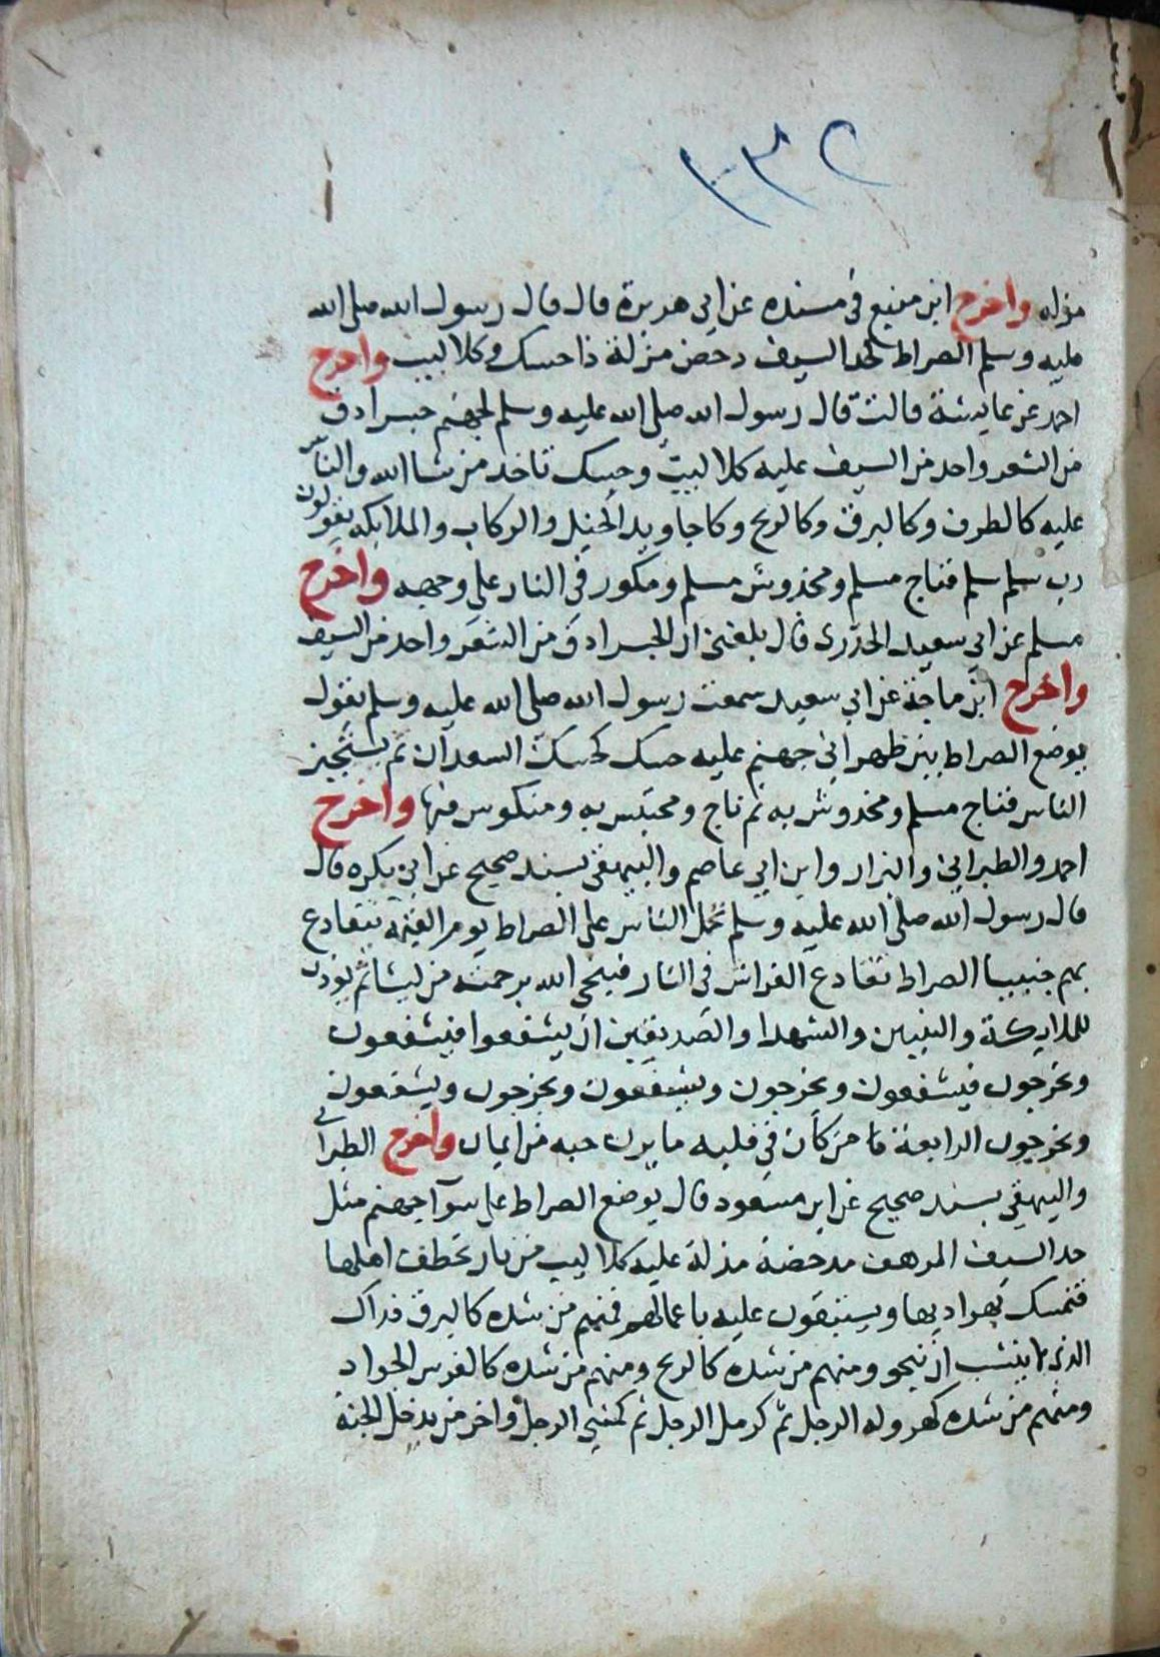 ١٣٢
مزله واخرج ابن منيع في مسنده عن ابي هريرة قال قال رسول الله صلى الله
عليه وسلم الصراط كحد السيف دحض مزلة ذا حسك وكلاليب واخرج
احمد عن عايشة قالت قال رسول الله صلى الله عليه وسلم لجهنم جسر ادق
من الشعر واحد من السيف عليه كلاليب وحسك تاخذ من شا الله والناس
عليه كالطرف وكالبرق وكالريح وكاجاويد الخيل والركاب والملايكه يقولون
رب سلم سلم فناج مسلم ومخدوش مسلم ومكور في النار على وجهه واخرج
مسلم عن ابي سعيد الخدرى قال بلغني ان الجسر ادق من الشعر واحد من السيف
واخرج ابن ماجة عن ابي سعيد سمعت رسول الله صلى الله عليه وسلم يقول
يوضع الصراط بين ظهراني جهنم عليه حسك كحسك السعدان ثم يستجيز
الناس فناج مسلم ومخدوش به ثم ناج ومحتبس به ومنكوس فيها واخرج
احمد والطبراني والبزار وابن ابي عاصم والبيهقي بسند صحيح عن ابي بكره قال
قال رسول الله صلى الله عليه وسلم تحمل الناس على الصراط يوم القيمة فتتقادع
بهم جنبيا الصراط تقادع الفراش في النار فينجي الله برحمته من يشا ثم يوذن
للملايكة والنبيين والشهدا والصديقين ان يشفعوا فيشفعون
ويخرجون فيشفعون ويخرجون ويشفعون ويخرجون ويشفعون
ويخرجون الرابعة فا من كان في قلبه ما يزن حبه من ايمان واخرج الطبراني
والبيهقي بسند صحيح عن ابن مسعود قال يوضع الصراط على سوآ جهنم مثل
حد السيف المرهف مدحضة مذلة عليه كلاليب من نار تخطف اهلها
فتمسك بهواديها ويستبقون عليه باعمالهم فمنهم من شده كالبرق فذاك
الذي لا ينشب ان ينجو ومنهم من شده كالريح ومنهم من شده كالفرس الجواد
ومنهم من شده كهروله الرجل ثم كرمل الرجل ثم كمشي الرجل واخر من يدخل الجنة